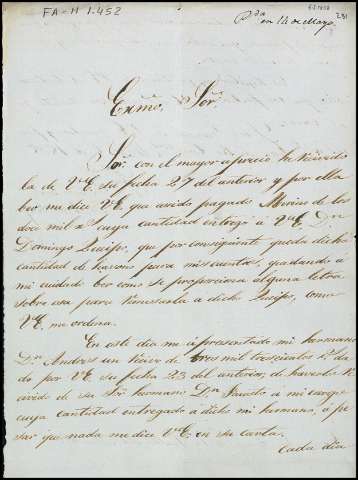 FA-M 1.452
Rda
en 14 de Mayo.
231
Exmo. Sor.
Sor. con el mayor aprecio he recivido
la de V.E. su fecha 27 del anterior y por ella
beo me dice V.E. que avido pagado de los
dos mil cuya cantidad entregó á V.E. Dn
Domingo que por consiguiente queda dicha
cantidad de para mis cuentas, quedando á
mi cuidado ber como se proporciona alguna letra
sobre esa para á dicho como
V.E. me ordena.
En este dia me á presentado mi hermano
Dn Andres un de tres mil trescientos da
do por V.E. su fecha 23 del anterior, de haverlo re
civido de su Sor hermano Dn á mi cargo
cuya cantidad entregado á dicho mi hermano, á pe
sar que nada me dice V.E. en su carta.
Cada dia